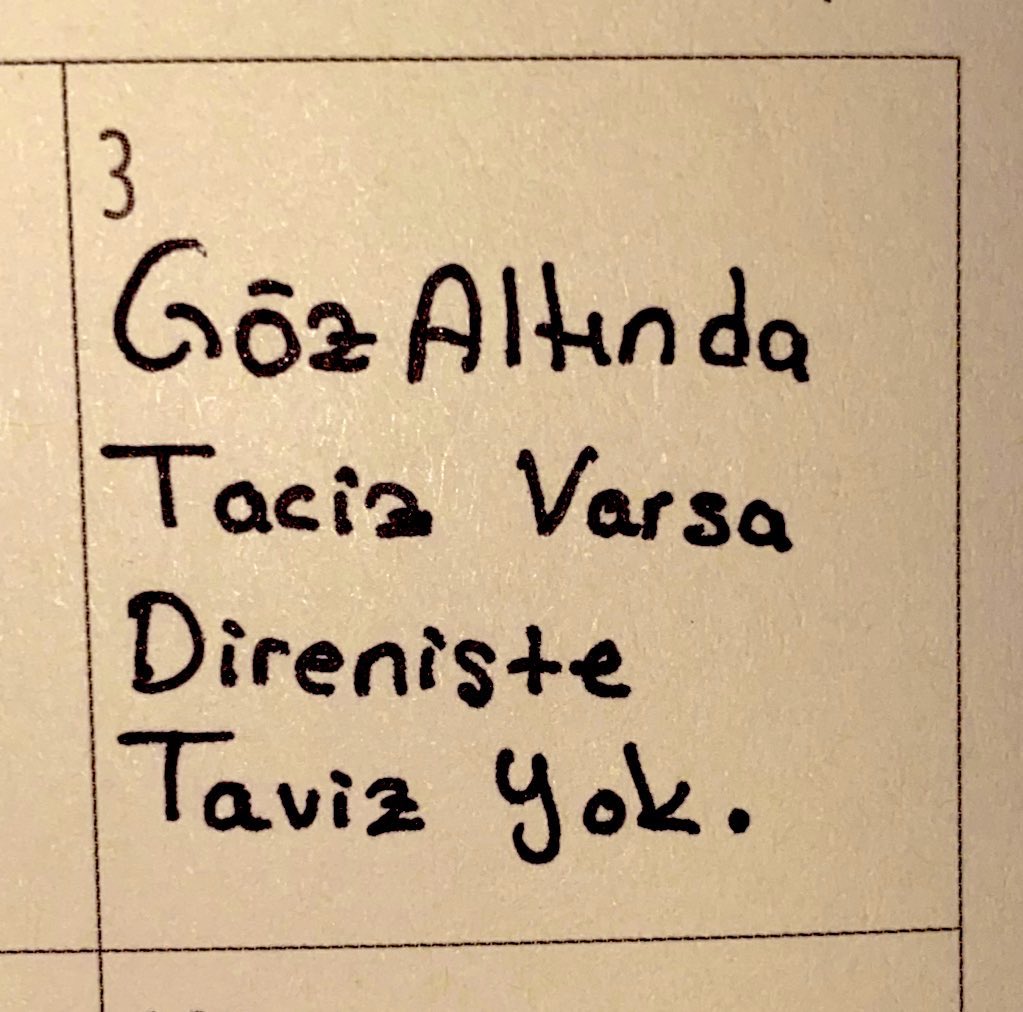 3
Göz Altında
Taciz Varsa
Direnişte
Taviz Yok.